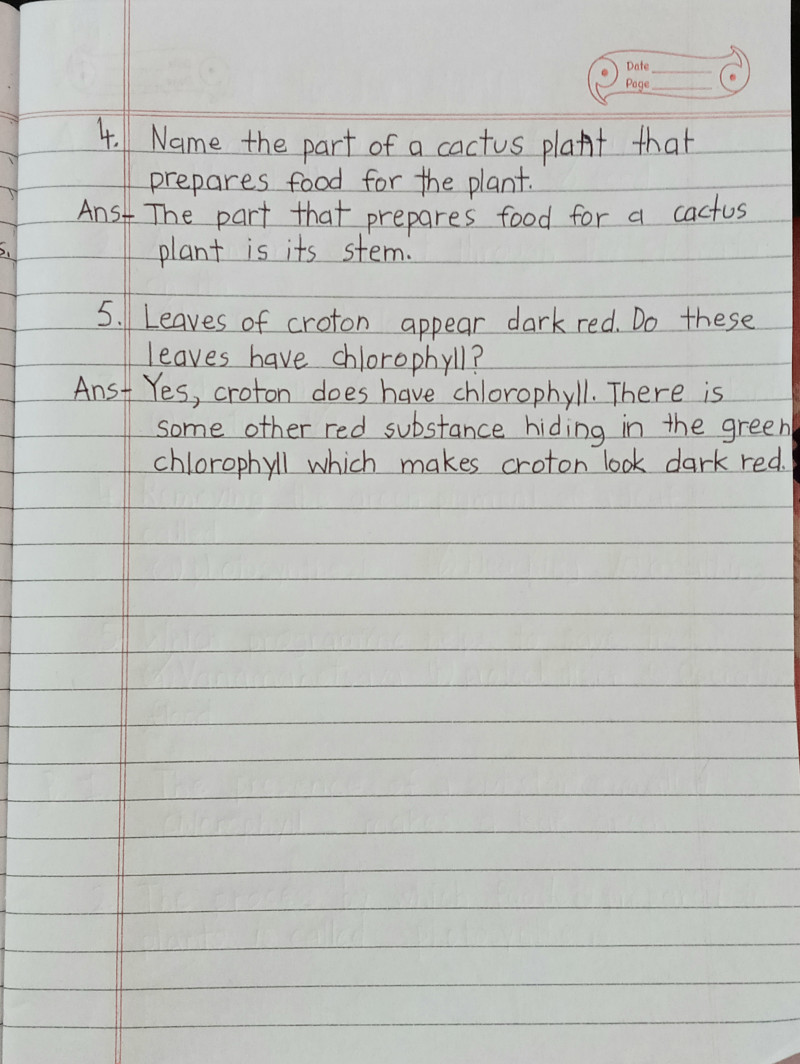 Date
Page
4. Name the part of a cactus plant that
prepares food for the plant.
Ans- The part that prepares food for a cactus
plant is its stem.
5. Leaves of croton appear dark red. Do these
leaves have chlorophyll?
Ans- Yes, croton does have chlorophyll. There is
some other red substance hiding in the green
chlorophyll which makes croton look dark red.